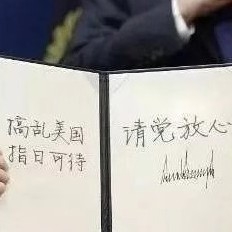 搞乱美国
指日可待
请党放心